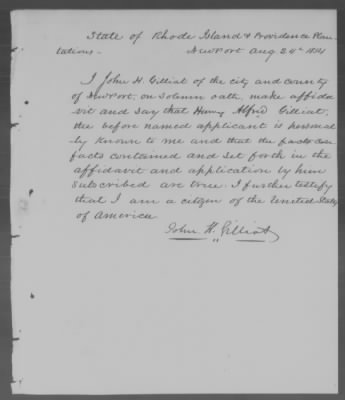 State of Rhode Island & Providence Plan-
tations -
Newport Aug 24th
I John H. Gilliat of the city and county
of Newport, on solemn oath, make affida
vit and say that Henry Alfred Gilliat,
the before named applicant is personal
ly known to me and that the
facts contained and set forth in the
affidavit and application by him
subscribed are true. I further testify
that I am a citizen of the United States
of America.
John H. Gilliat